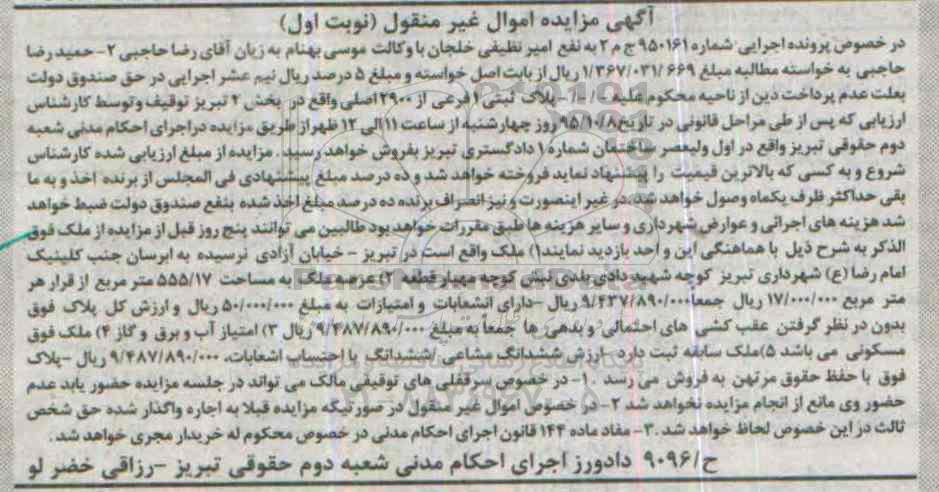 آگهی مزایده اموال غیر منقول (نوبت اول)
در خصوص پرونده اجرایی شماره ۹۵۰۱۶۱ ج م ۲ به نفع امیر نظیفی خلجان با وکالت موسی بهنام به زیان آقای رضا حاجبی ۲- حمید رضا
حاجبی به خواسته مطالبه مبلغ ۱/۳۶۷/۰۳۱/۶۶۹ ریال از بابت اصل خواسته و مبلغ ۵ درصد ریال نیم عشر اجرایی در حق صندوق دولت
بعلت عدم پرداخت دین از ناحیه محکوم علیه ۱- پلاک ثبتی ۱ فرعی از ۲۹۰۰ اصلی واقع در بخش ۲ تبریز توقیف و توسط کارشناس
ارزیابی که پس از طی مراحل قانونی در تاریخ ۹۵/۱۰/۸ روز چهارشنبه از ساعت ۱۱ الی ۱۲ ظهر از طریق مزایده در اجرای احکام مدنی شعبه
دوم حقوقی تبریز واقع در اول ولیعصر ساختمان شماره ۱ دادگستری تبریز بفروش خواهد رسید. مزایده از مبلغ ارزیابی شده کارشناس
شروع و به کسی که بالاترین قیمت را پیشنهاد نماید فروخته خواهد شد و ده درصد مبلغ پیشنهادی فی المجلس از برنده اخذ و به ما
بقی حداکثر ظرف یکماه وصول خواهد شد. در غیر اینصورت و نیز انصراف برنده ده درصد مبلغ اخذ شده بنفع صندوق دولت ضبط خواهد
شد هزینه های اجرائی و عوارض شهرداری و سایر هزینه ها طبق مقررات خواهد بود طالبین می توانند پنج روز قبل از مزایده از ملک فوق
الذکر به شرح ذیل با هماهنگی این و احد بازدید نمایند ۱) ملک واقع است در تبریز - خیابان آزادی نرسیده به ابرسان جنب کلینیک
امام رضا (ع) شهرداری تبریز کوچه شهید دادی بلدی نبش کوچه مهیار قطعه ۲) عرصه ملک به مساحت ۵۵۵/۱۷ متر مربع از قرار هر
متر مربع ۱۷/۰۰۰/۰۰۰ ریال جمعا ۹/۴۳۷/۸۹۰/۰۰۰ ریال -دارای انشعابات و امتیازات به مبلغ ۵۰/۰۰۰/۰۰۰ ریال و ارزش کل پلاک فوق
بدون در نظر گرفتن عقب کشی های احتمالی و بدهی ها جمعاً به مبلغ ۹/۴۸۷/۸۹۰/۰۰۰ ریال ۳) امتیاز آب و برق و گاز ۴) ملک فوق
مسکونی می باشد ۵) ملک سابقه ثبت دارد ارزش ششدانگ مشاعی /ششدانگ با احتساب اشعابات، ۹/۴۸۷/۸۹۰/۰۰۰ ریال -پلاک
فوق با حفظ حقوق مرتهن به فروش می رسد .۱- در خصوص سرقفلی های توقیفی مالک می تواند در جلسه مزایده حضور یابد عدم
حضور وی مانع از انجام مزایده نخواهد شد ۲- در خصوص اموال غیر منقول در صورتیکه مزایده قبلا به اجاره واگذار شده حق شخص
ثالث در این خصوص لحاظ خواهد شد .۳- مفاد ماده ۱۴۴ قانون اجرای احکام مدنی در خصوص محکوم له خریدار مجری خواهد شد.
ح/۹۰۹۶ دادورز اجرای احکام مدنی شعبه دوم حقوقی تبریز -رزاقی خضر لو